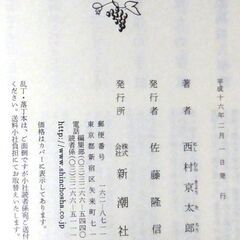 平成十六年二月一日発行
著者 西村京太郎
発行者 佐藤隆信
発行所 株式会社 新潮社
郵便番号 一六二-八七一一
東京都新宿区矢来町七一
電話 編集部(〇三)三二六六-五四四〇
読者係(〇三)三二六六-五一一一
http://www.shinchosha.co.jp
価格はカバーに表示してあります。
乱丁・落丁本は、ご面倒ですが小社読者係宛ご送付
ください。送料小社負担にてお取替えいたします。